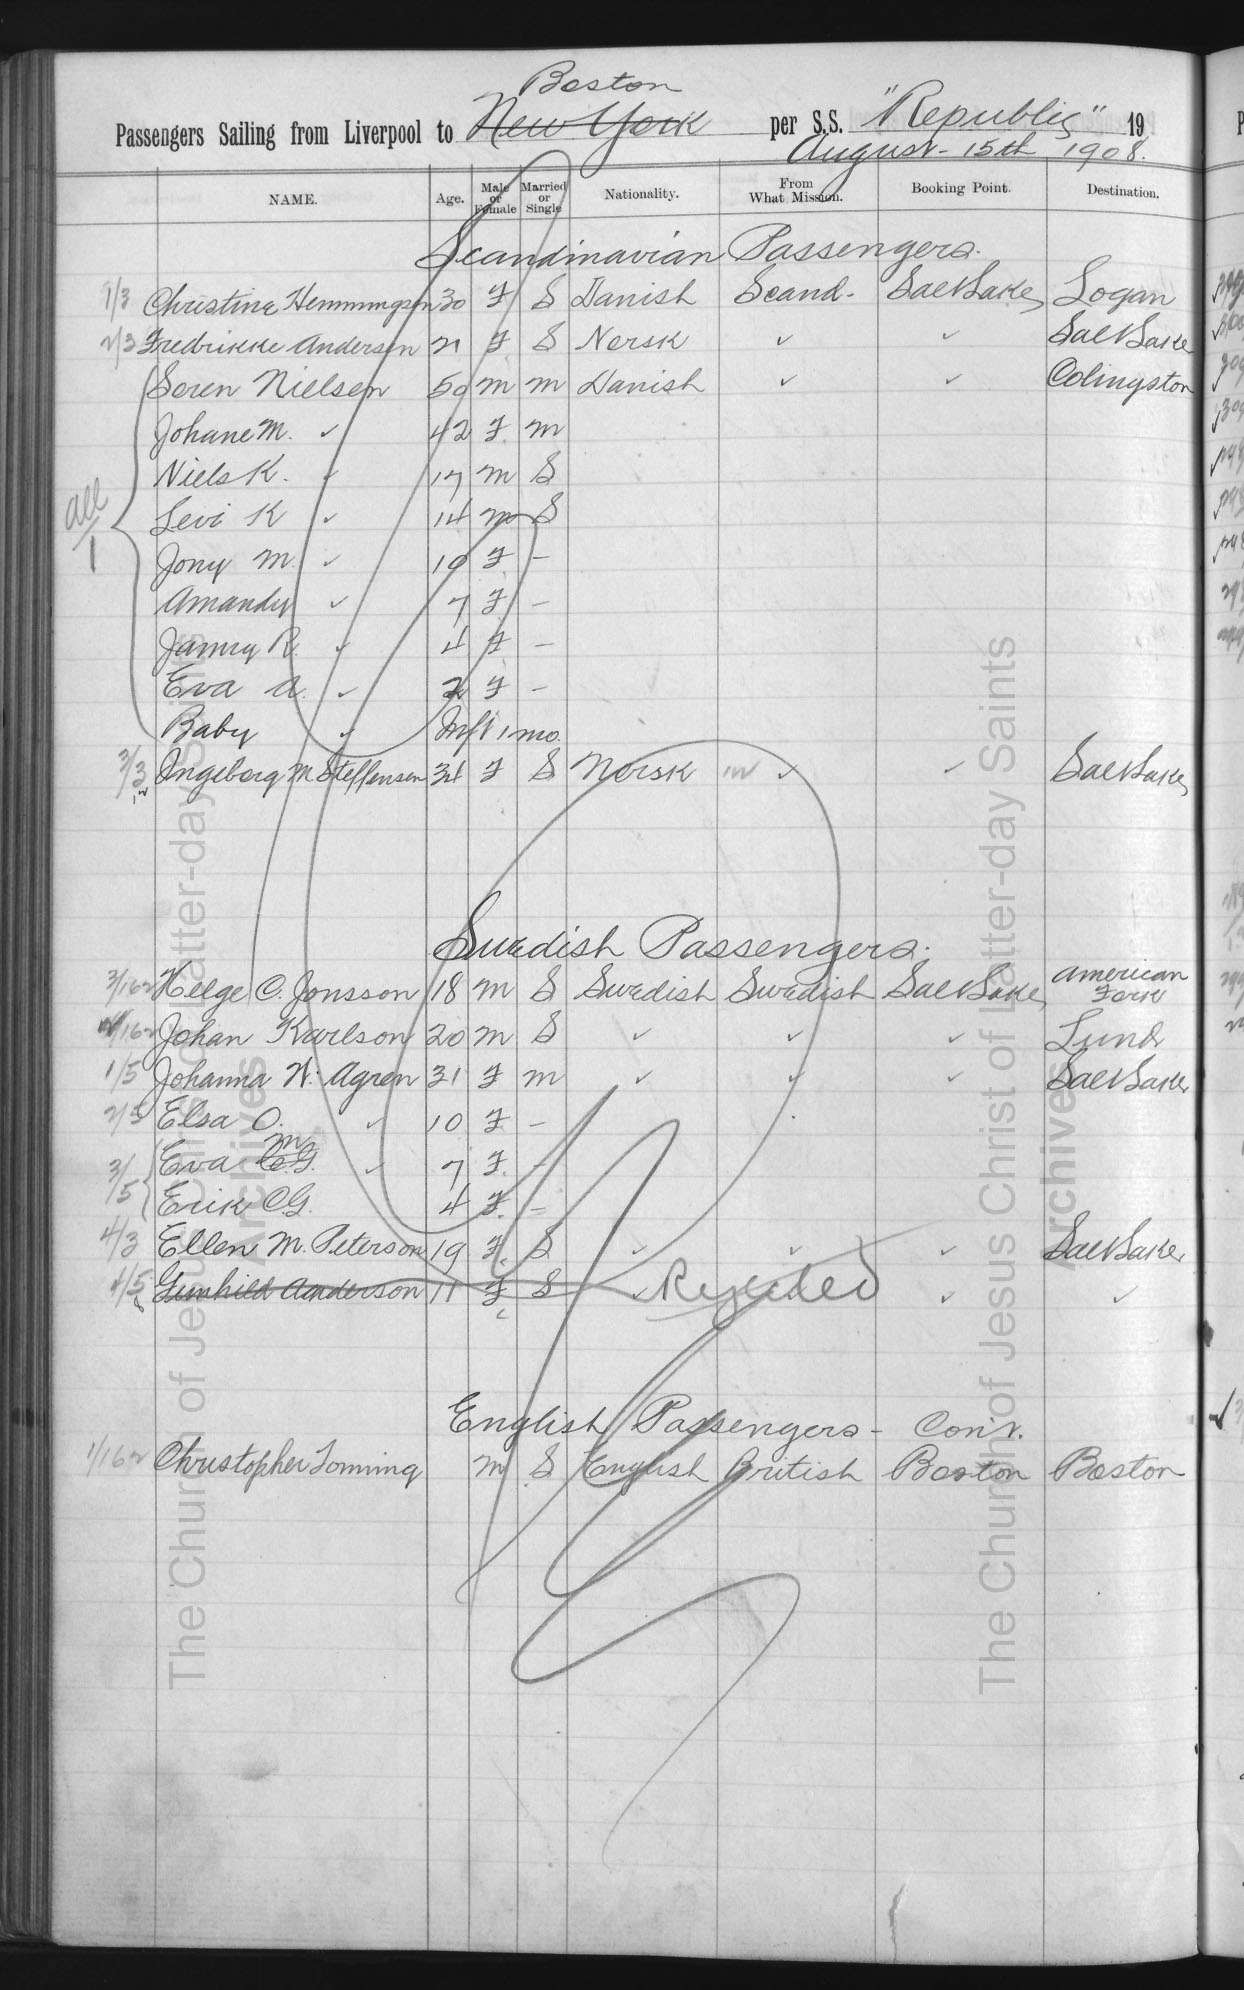 Boston
Passengers Sailing from Liverpool to New York per S.S. "Republic" 19
August - 15th 1908.
NAME. Age. Male or Female Married or Single Nationality. From What Mission. Booking Point. Destination.
Scandinavian Passengers.
1/3 Christine Hemmingsen 30 F S Danish Scand- Salt Lake Logan
2/3 Fredrikke Andersen 21 F S Norsk ✓ ✓ Salt Lake
Soren Nielsen 50 m m Danish ✓ ✓ Colingston
Johane M. ✓ 42 F. m
Niels K. ✓ 17 m S
all/1 Levi K ✓ 14 m S
Jony M. ✓ 10 F. -
Amandy ✓ 7 F -
Janny R. ✓ 4 F -
Eva A. ✓ 2 F -
Baby ✓ Inft 1 mo.
3/3 Ingeborg M Steffensen 34 F S Norsk ✓ ✓ Salt Lake
Swedish Passengers.
3/162 Helge C. Jonsson 18 m S Swedish Swedish Salt Lake American Fork
/162 Johan Karlson 20 m S ✓ ✓ ✓ Lund
1/5 Johanna W. Agren 31 F m ✓ ✓ ✓ Salt Lake
2/5 Elsa O. ✓ 10 F. -
m
3/5 Eva G. ✓ 7 F. -
Erik O G. 4 F. -
4/3 Ellen M. Peterson 19 F. S ✓ ✓ ✓ Salt Lake
4/5 Gunhild Anderson 11 F S ✓ Rejected ✓ ✓
English Passengers - Con't.
1/162 Christopher Tomming m S English British Boston Boston
The Church of Jesus Christ of Latter-day Saints
Archives
The Church of Jesus Christ of Latter-day Saints
Archives